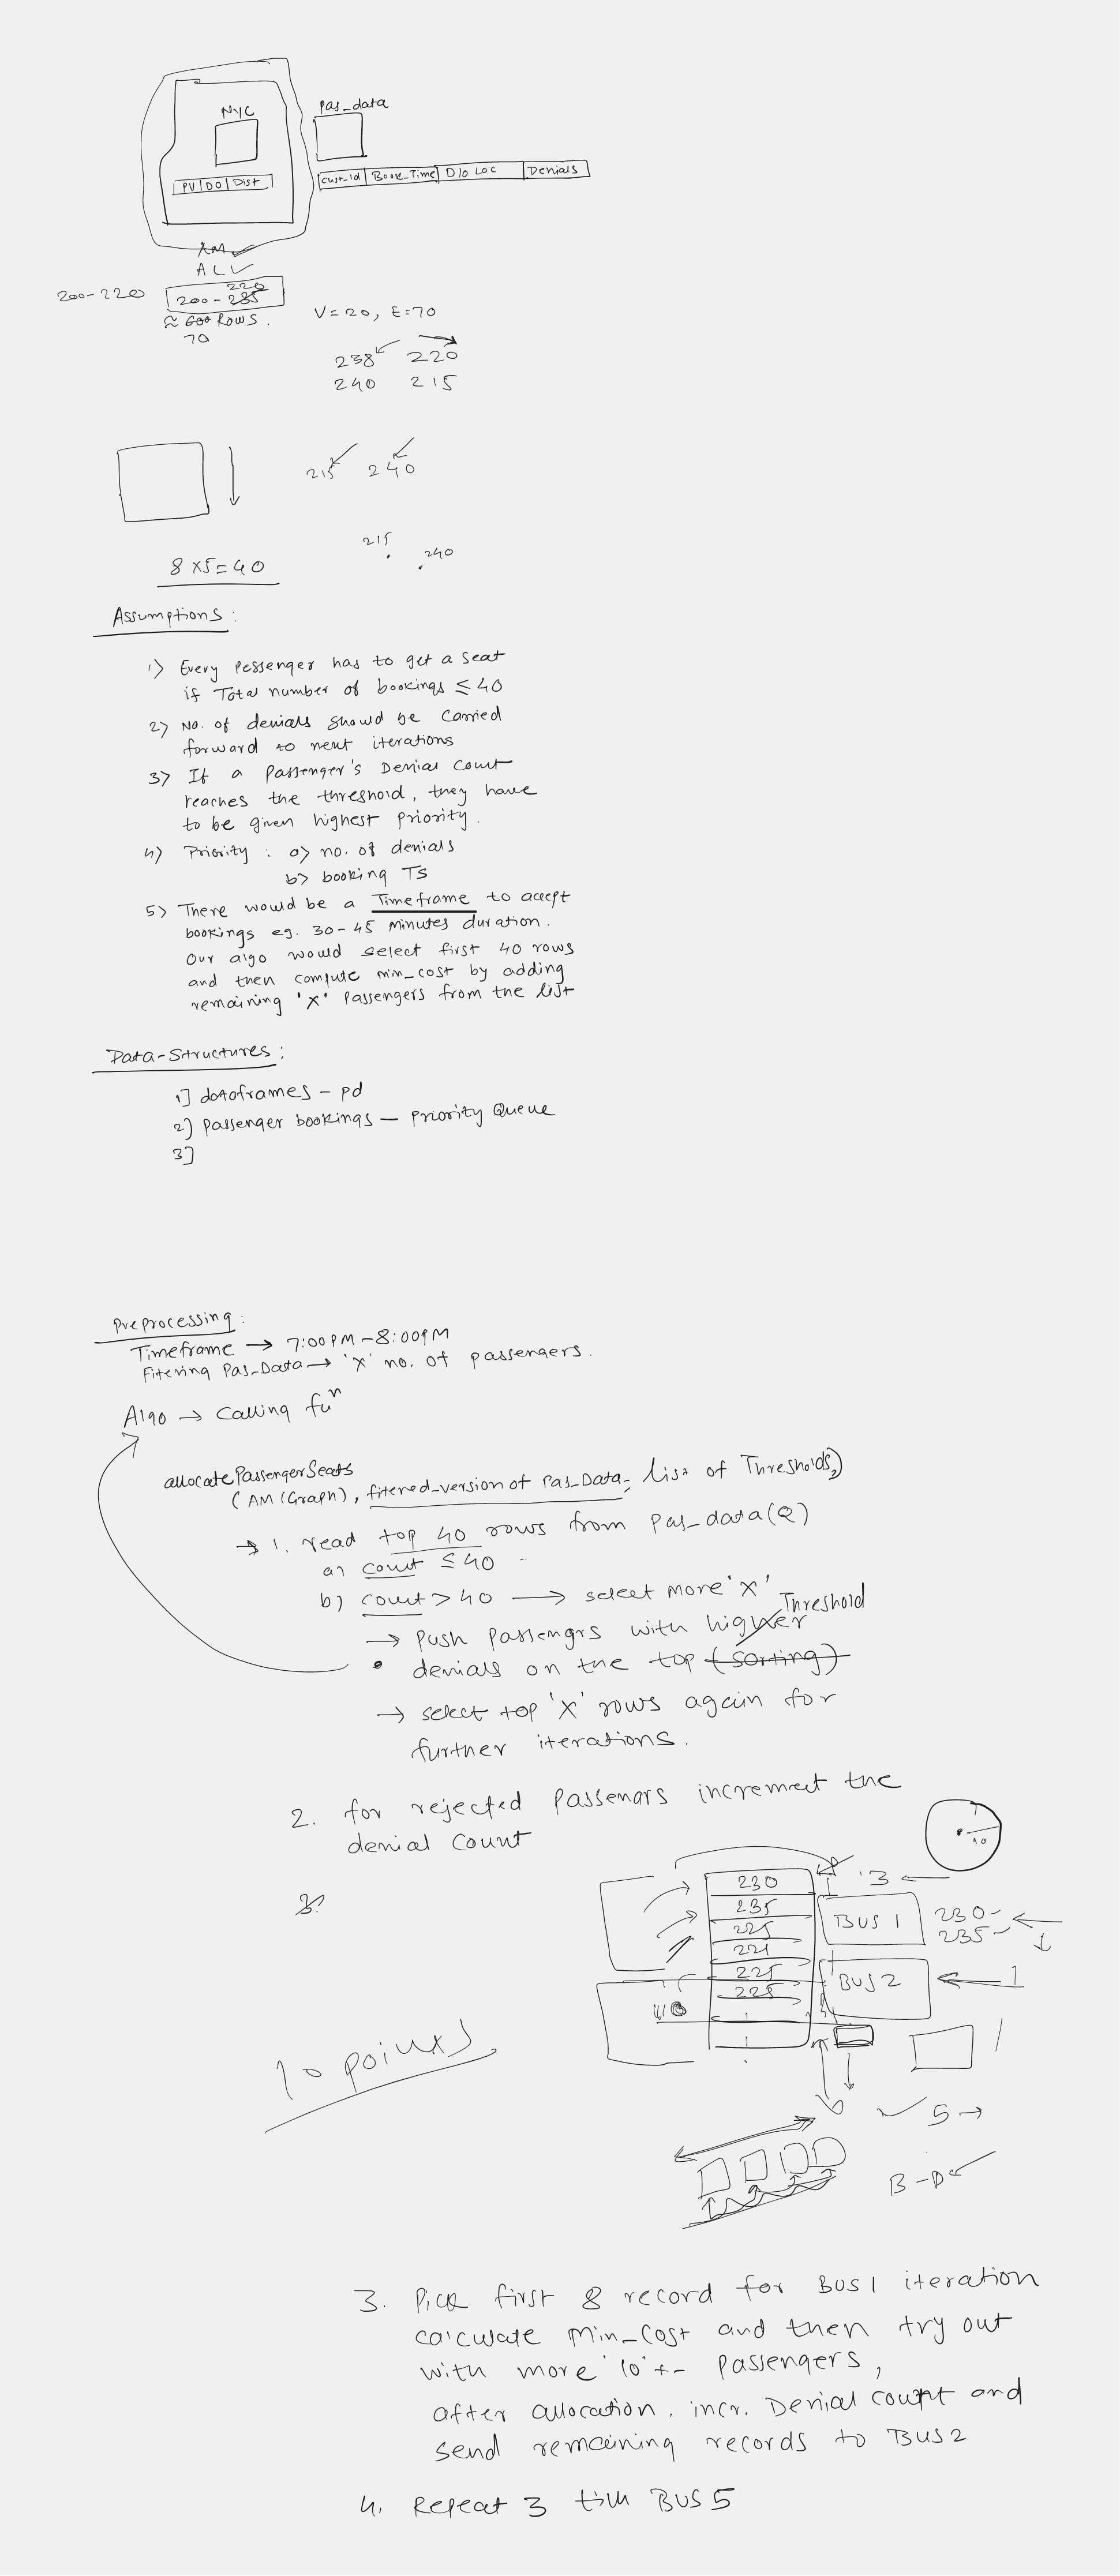 NYC
Pas_data
PU|DO|Dist
Cust_Id | Book_Time | D/O LOC | Denials
AM
ALV
200-220
220
200-285
≈ 600 Rows.
70
V=20, E=70
238 220
240 215
215 240
215
240
8 x5=40
Assumptions:
1) Every pessenger has to get a seat
if Total number of bookings ≤ 40
2) No. of denials should be Carried
forward to next iterations
3) If a Passenger's Denial Count
reaches the threshold, they have
to be given highest priority.
4) Priority : a) no. of denials
b) booking TS
5) There would be a Timeframe to accept
bookings eg. 30-45 Minutes duration.
Our algo would select first 40 rows
and then compute min_cost by adding
remaining 'x' Passengers from the list
Data-Structures:
1] dataframes - pd
2] passenger bookings - priority Queue
3]
Preprocessing:
Timeframe → 7:00PM-8:00PM
Fitering Pas_Data → 'x' no. of passengers.
Algo → Calling fuⁿ
allocatePassengerSeats
(AM(Graph), fitered_version of Pas_Data, List of Thresholds,)
→ 1. read top 40 rows from Pas_data(Q)
a) count ≤ 40
b) count > 40 → select more 'x'
Threshold
→ push passengrs with higher
• denials on the top (sorting)
→ select top 'x' rows again for
further iterations.
2. for rejected Passenars increment the
denial count
3?
10
230
235
225
221
225
225
3
BUS 1
230-
235-
BUS 2
1
10 points
5 →
B-D
3. Pick first 8 record for BUS1 iteration
calculate Min_Cost and then try out
with more '10' +- Passengers,
after allocation, incr. Denial count and
send remaining records to BUS2
4. Repeat 3 till BUS 5